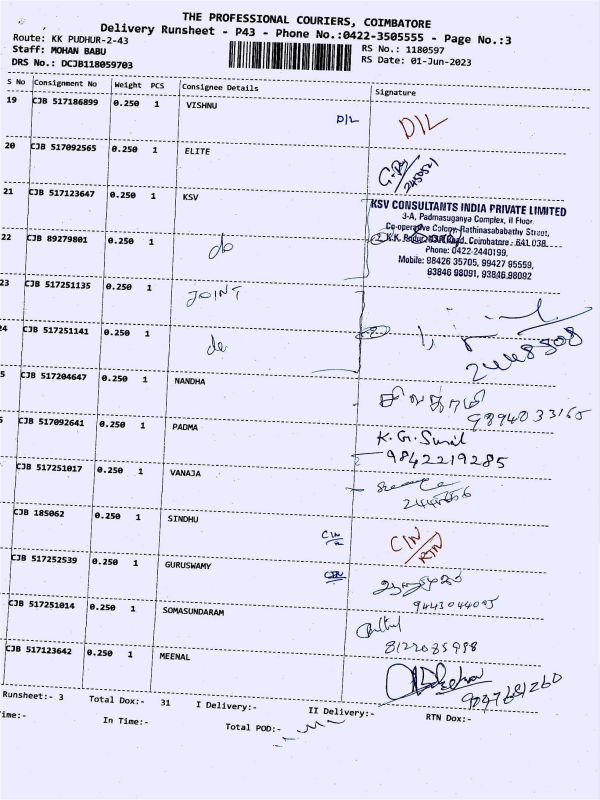 THE PROFESSIONAL COURIERS, COIMBATORE
Delivery Runsheet - P43 - Phone No.:0422-3505555 - Page No.:3
Route: KK PUDHUR-2-43
RS No.: 1180597
Staff: MOHAN BABU
RS Date: 01-Jun-2023
DRS No.: DCJB118059703
S No Consignment No Weight PCS Consignee Details Signature
19 CJB 517186899 0.250 1 VISHNU D/L D/L
20 CJB 517092565 0.250 1 ELITE
21 CJB 517123647 0.250 1 KSV
KSV CONSULTANTS INDIA PRIVATE LIMITED
3-A, Padmasuganya Complex, II Floor,
Co-operative Colony, Rathinasababathy Street,
K.K. Pudur, Coimbatore - 641 038.
Phone: 0422-2440199,
Mobile: 98426 35705, 99427 95559,
93846 98091, 93846 98092
22 CJB 89279801 0.250 1 do
23 CJB 517251135 0.250 1 JOINT
24 CJB 517251141 0.250 1 do
5 CJB 517204647 0.250 1 NANDHA
CJB 517092641 0.250 1 PADMA K.G. Sunil
9842219285
CJB 517251017 0.250 1 VANAJA
CJB 185062 0.250 1 SINDHU CIN/R CIN/RTN
CJB 517252539 0.250 1 GURUSWAMY
CJB 517251014 0.250 1 SOMASUNDARAM
CJB 517123642 0.250 1 MEENAL
Runsheet:- 3 Total Dox:- 31 I Delivery:- II Delivery:- RTN Dox:-
ime:- In Time:- Total POD:-